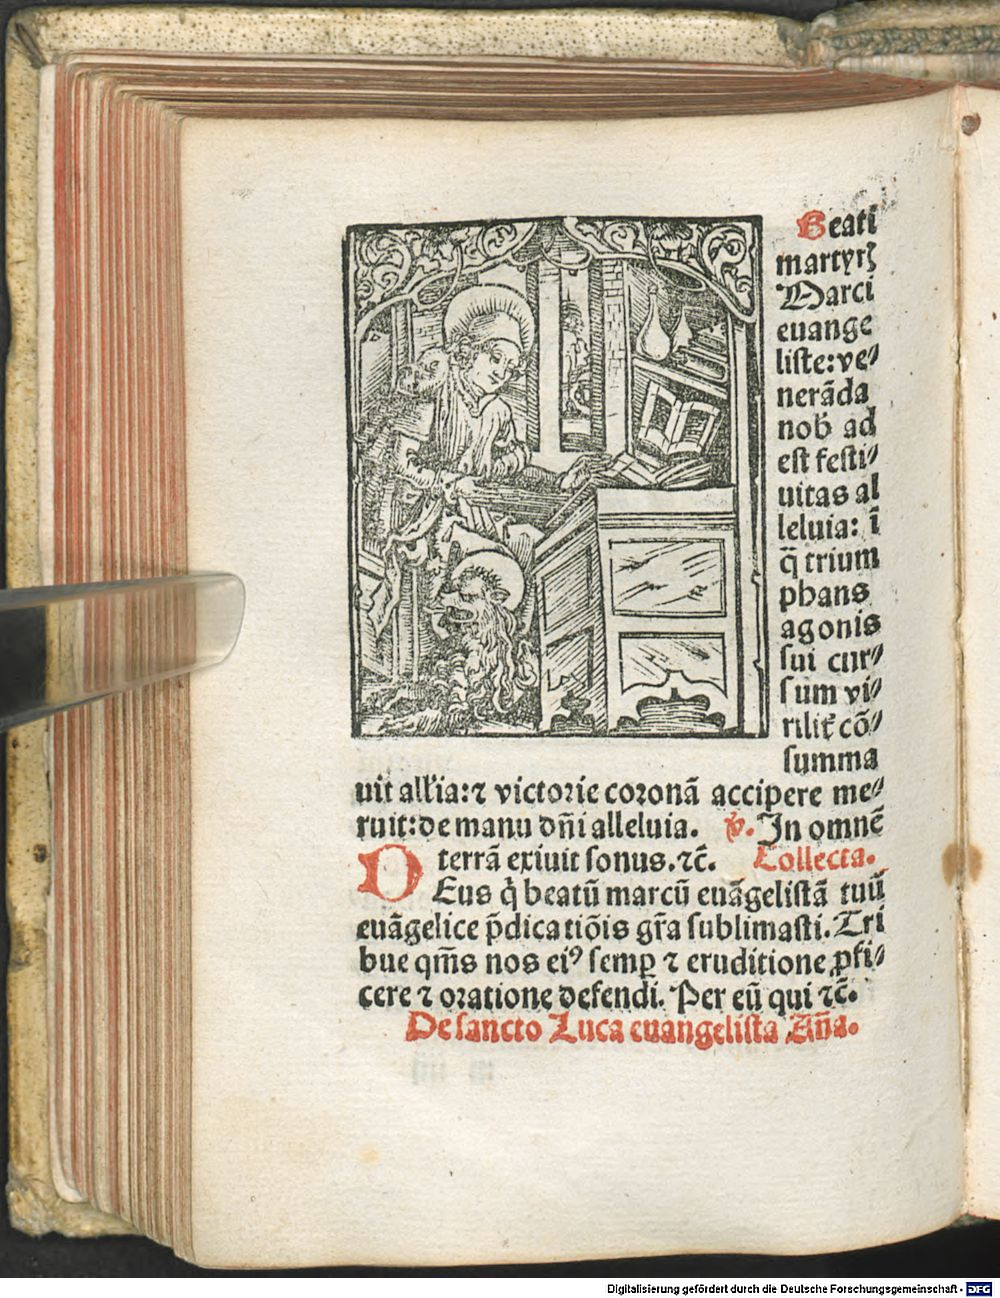 Beati
martyrꝭ
Marci
euange
liste: ve⸗
nerãda
nob̃ ad
est festi⸗
uitas al
leluia: ĩ
q̃ trium
phans
agonis
sui cur⸗
sum vi⸗
rilit̃ cõ⸗
summa
uit all'ia: ⁊ victorie coronã accipere me⸗
ruit: de manu dñi alleluia. ℣. In omnẽ
terrã exiuit sonus. ⁊c̃. Collecta.
DEus q̇ beatũ marcũ euãgelistã tuũ
euãgelice p̃dicatiõis gr̃a sublimasti. Tri
bue qm̃s nos eiꝰ semꝑ ⁊ eruditione ꝓfi⸗
cere ⁊ oratione defendi. Per eũ qui ⁊c̃.
De sancto Luca euangelista Añа.
Digitalisierung gefördert durch die Deutsche Forschungsgemeinschaft - DFG